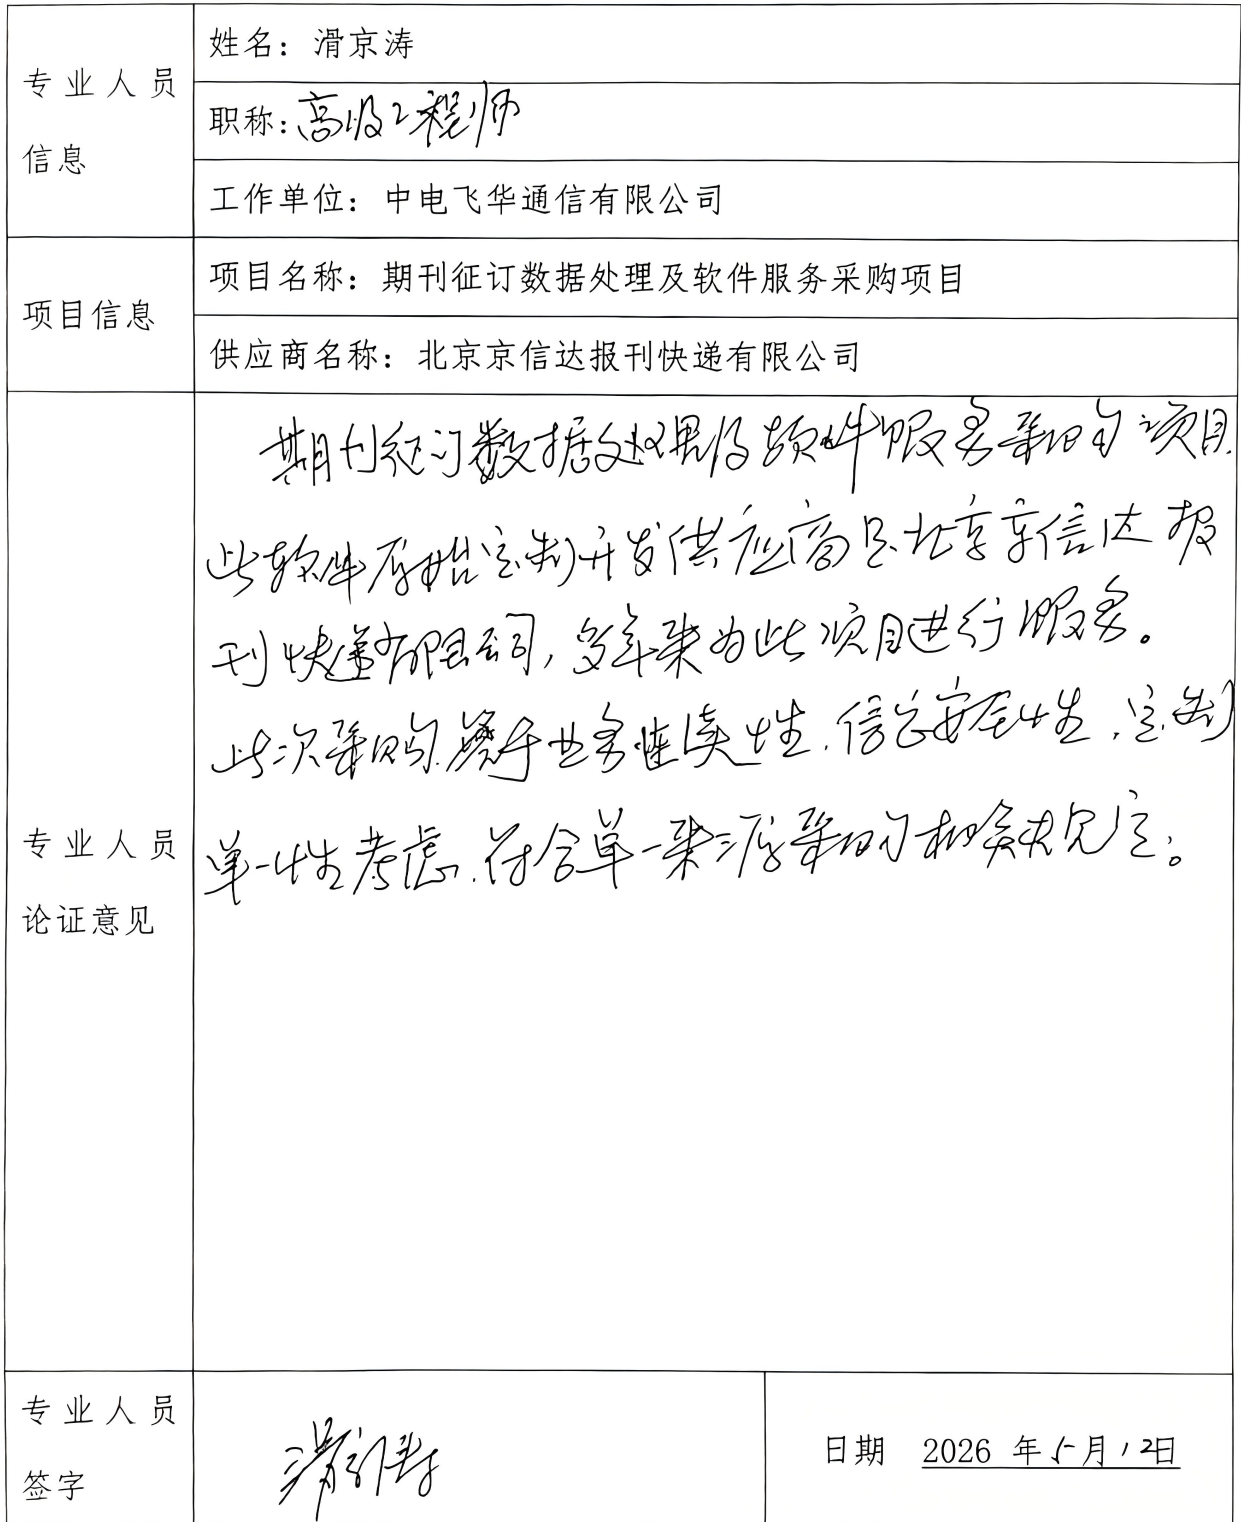 专业人员
信息
姓名：滑京涛
职称：高级工程师
工作单位：中电飞华通信有限公司
项目信息
项目名称：期刊征订数据处理及软件服务采购项目
供应商名称：北京京信达报刊快递有限公司
专业人员
论证意见
期刊征订数据处理及软件服务采购项目，
此软件原始定制开发供应商是北京京信达报
刊快递有限公司，多年来为此项目进行服务。
此次采购，基于业务连续性，信息安全性，定制
单一性考虑，符合单一来源采购相关规定。
专业人员
签字
滑京涛
日期 2026 年 5 月 12 日